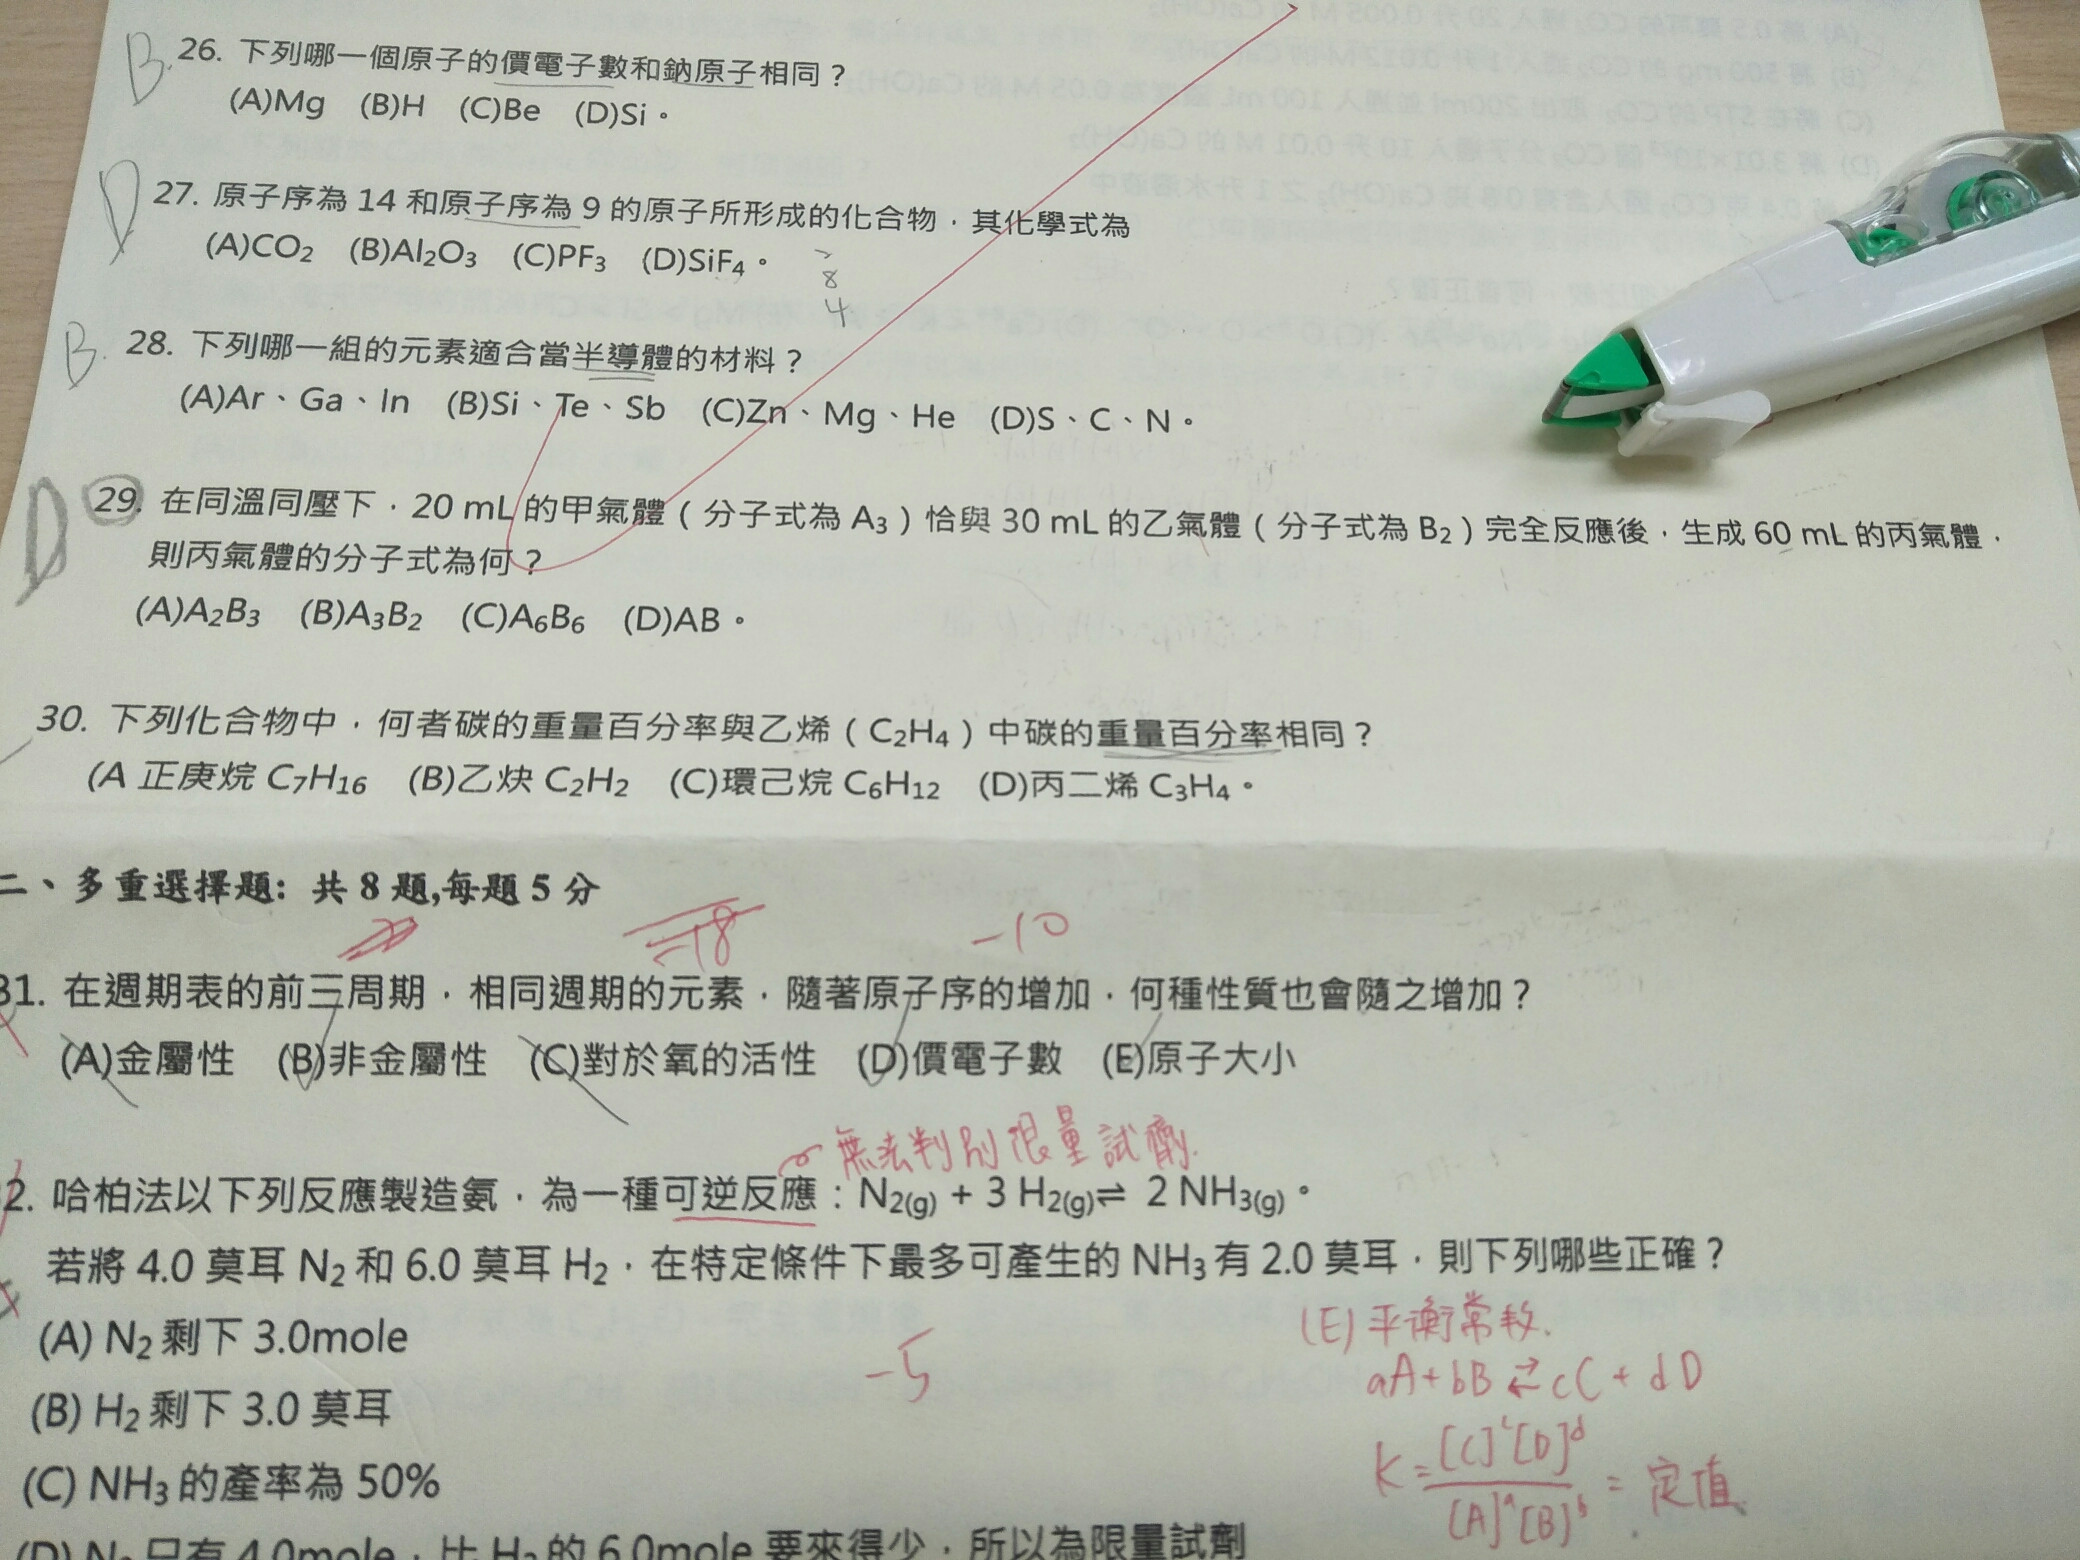 B.
26. 下列哪一個原子的價電子數和鈉原子相同？
(A)Mg (B)H (C)Be (D)Si。
D
27. 原子序為 14 和原子序為 9 的原子所形成的化合物，其化學式為
(A)CO₂ (B)Al₂O₃ (C)PF₃ (D)SiF₄。
8
4
B.
28. 下列哪一組的元素適合當半導體的材料？
(A)Ar、Ga、In (B)Si、Te、Sb (C)Zn、Mg、He (D)S、C、N。
D
29. 在同溫同壓下，20 mL 的甲氣體（分子式為 A₃）恰與 30 mL 的乙氣體（分子式為 B₂）完全反應後，生成 60 mL 的丙氣體，
則丙氣體的分子式為何？
(A)A₂B₃ (B)A₃B₂ (C)A₆B₆ (D)AB。
30. 下列化合物中，何者碳的重量百分率與乙烯（C₂H₄）中碳的重量百分率相同？
(A 正庚烷 C₇H₁₆ (B)乙炔 C₂H₂ (C)環己烷 C₆H₁₂ (D)丙二烯 C₃H₄。
二、多重選擇題: 共 8 題,每題 5 分
-18 -10
31. 在週期表的前三周期，相同週期的元素，隨著原子序的增加，何種性質也會隨之增加？
(A)金屬性 (B)非金屬性 (C)對於氧的活性 (D)價電子數 (E)原子大小
無法判別限量試劑.
2. 哈柏法以下列反應製造氨，為一種可逆反應：N₂(g) + 3 H₂(g)⇌ 2 NH₃(g)。
若將 4.0 莫耳 N₂ 和 6.0 莫耳 H₂，在特定條件下最多可產生的 NH₃ 有 2.0 莫耳，則下列哪些正確？
(A) N₂ 剩下 3.0mole
(B) H₂ 剩下 3.0 莫耳
(C) NH₃ 的產率為 50%
(D) N₂ 只有 4.0mole，比 H₂ 的 6.0mole 要來得少，所以為限量試劑
-5
(E) 平衡常數.
aA + bB ⇄ cC + dD
K = [C]ᶜ[D]ᵈ / [A]ᵃ[B]ᵇ = 定值